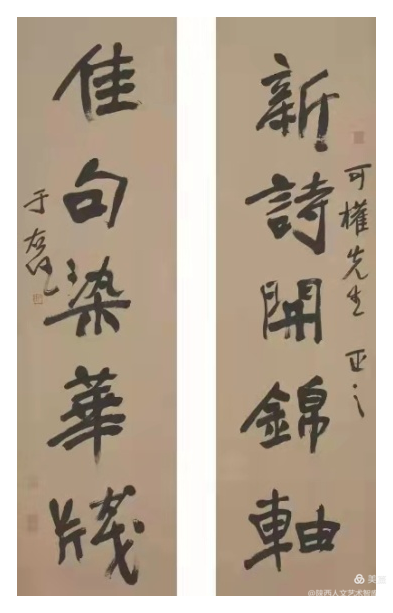 新詩開錦軸
可權先生 正之
佳句染華牋
于右任
美篇
@陕西人文艺术智库